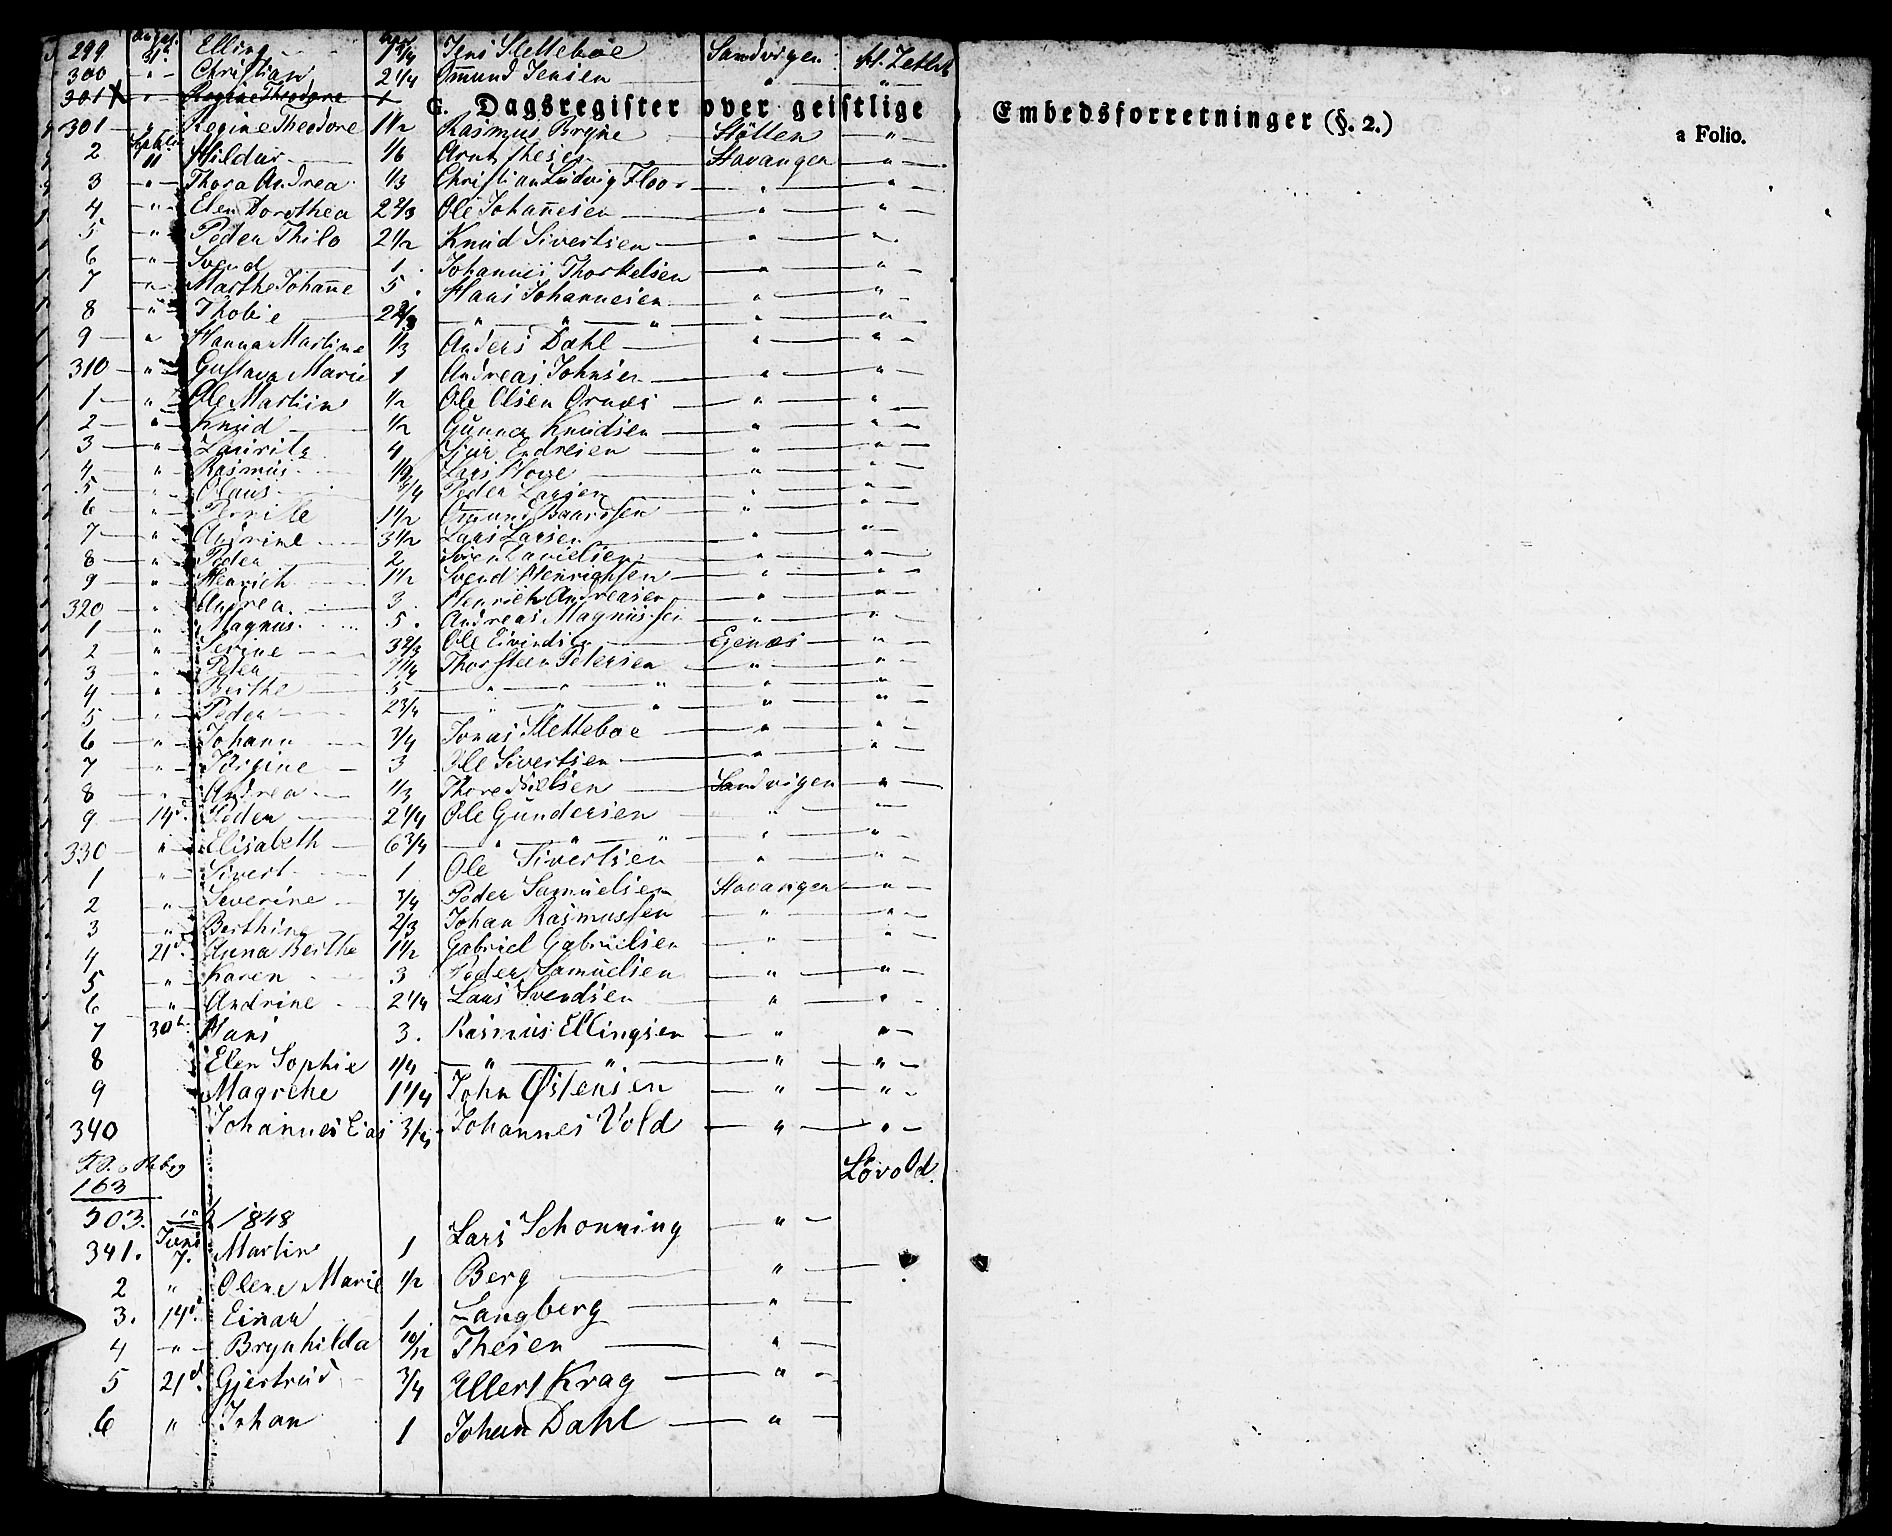 299 August 31te Elling 1 3/4 Jens Slettebøe Sandvigen A. Zetlitz
300 " Christian 2 1/4 Omund Jensen " "
301 " Regine Theodore 1
G. Dagsregister over geistlige Embedsforretninger (§. 2.) a Folio.
301 " Regine Theodore 1 1/2 Rasmus Bryne "
2 11 Hildur 1/6 Arnt Thesen Stavanger "
3 " Thora Andrea 1/3 Christian Ludvig Floor " "
4 " Elen Dorothea 2 2/3 Ole Johannesen " "
5 " Peder Thilo 2 1/2 Knud Sivertsen " "
6 " Svend 1 Johannes Thorkelsen " "
7 " Marthe Johanne 5 Hans Johannesen " "
8 " Thobie 2 " " " " "
9 " Hanna Martine 1/3 Anders Dahl " "
310 " Gustava Marie 1 Andreas Johnsen " "
1 " Ole Martin 1/2 Ole Olsen Ornæs " "
2 " Knud 1/2 Gunner Knudsen " "
3 " Lauritz 4 Endresen " "
4 " Rasmus Lars " "
5 " Olaus 3/4 Peder Larsen " "
6 " Pernille 1 1/2 Omund Baardsen " "
7 " Andrine 3 1/2 Lars Larsen " "
8 " Peder 2 Danielsen " "
9 " Henrich 1 1/2 Svend Henrichsen " "
320 " Andrea 3 Henrich Andreasen " "
1 " Magnus 5 Andreas Magnussen " "
2 " Serine 3 2/3 Ole Eivindsen Egenæs "
3 " Peter 7 1/4 Thorsteen Petersen " "
4 " Berthe 5 " " " " "
5 " Peder 2 3/4 " " " " "
6 " Johann 3/4 Jonas Slettebøe " "
7 " 3 Ole Sivertsen " "
8 " Andrea 1/3 Thore Nielsen Sandvigen "
9 14d. Peder 2 1/4 Ole Gundersen " "
330 " Elisabeth 6 3/4 " " " " "
1 " Sivert 1 Ole Sivertsen " "
2 " Severine 3/4 Peder Samuelsen Stavanger "
3 " Berthine 2/3 Johan Rasmussen " "
4 21d. Anna Berthe 1 1/2 Gabriel Gabrielsen " "
5 " Karen 3 Peder Samuelsen " "
6 " Andrine 2 1/4 Lars Svendsen " "
7 30t. Hans 3. Rasmus Ellingsen " "
8 Elen Sophie 1/4 " " " "
9 Magrethe 1 1/4 John Østensen " "
340 Johannes 3/4 Johannes Vold " "
Løvold.
163
503. 1848
341. Juni 7. Martin 1 Lars Schønning "
2 " Olene Marie 1/2 Berg "
3. 14d. Einar 1 Langberg "
4 " Brynhilda 10/12 Thesen "
5 21d. Gjertrud 3/4 Ellert Krag "
6 " Johan 1 Johan Dahl "